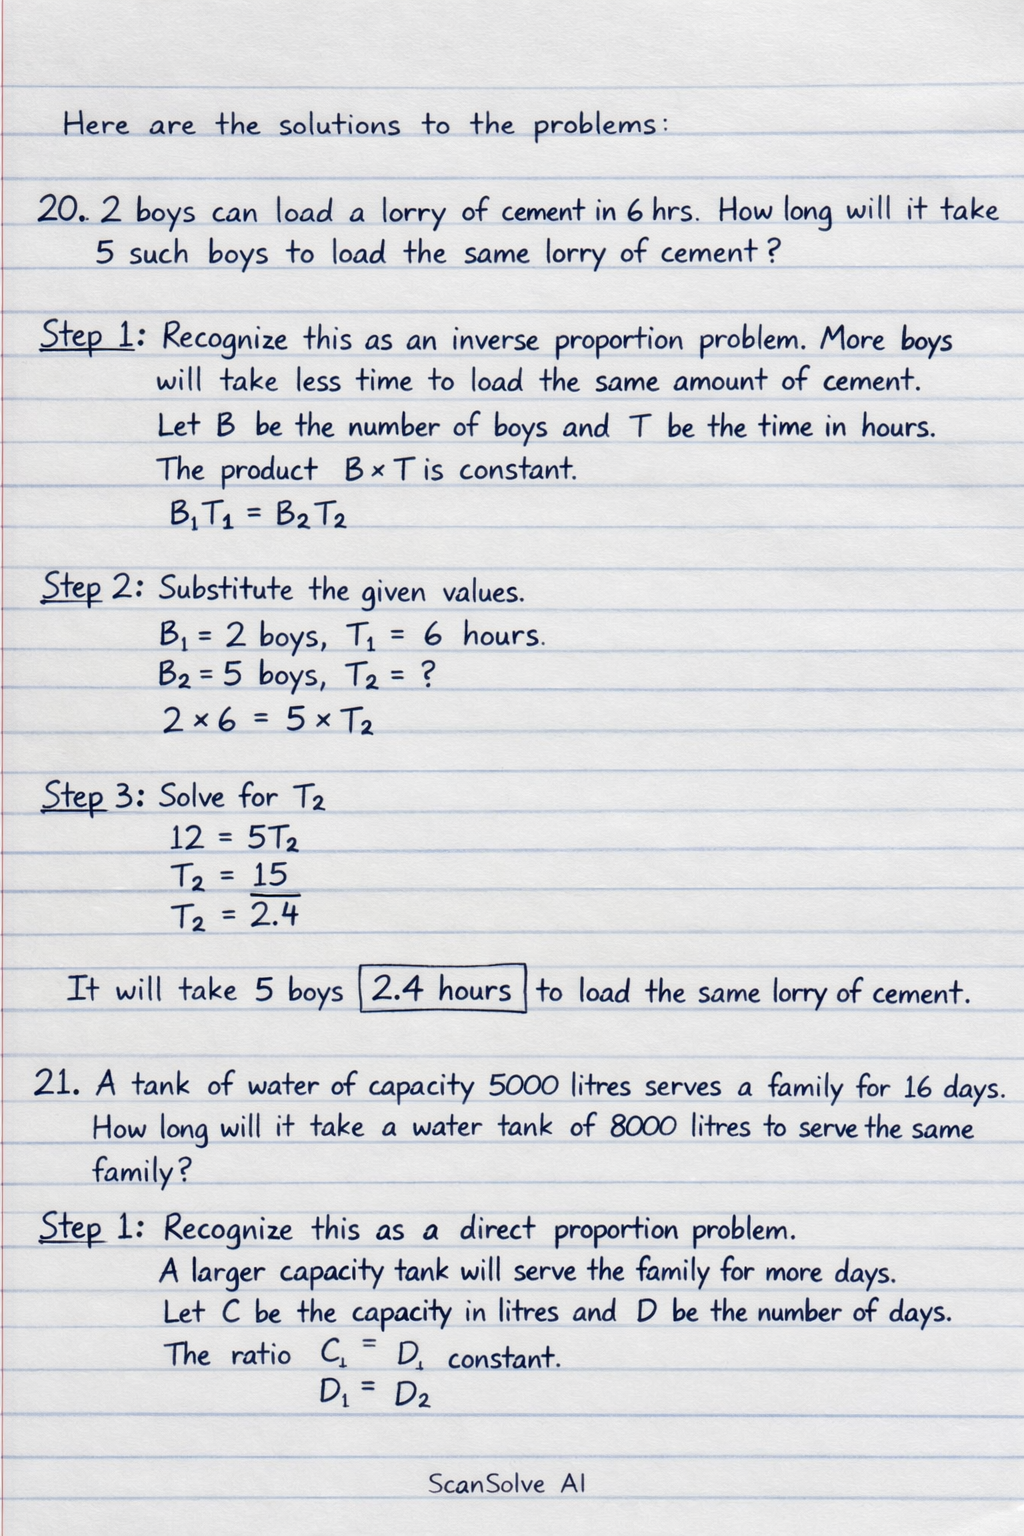 Here are the solutions to the problems:
20. 2 boys can load a lorry of cement in 6 hrs. How long will it take
5 such boys to load the same lorry of cement?
Step 1: Recognize this as an inverse proportion problem. More boys
will take less time to load the same amount of cement.
Let B be the number of boys and T be the time in hours.
The product B × T is constant.
B₁T₁ = B₂T₂
Step 2: Substitute the given values.
B₁ = 2 boys, T₁ = 6 hours.
B₂ = 5 boys, T₂ = ?
2 × 6 = 5 × T₂
Step 3: Solve for T₂
12 = 5T₂
T₂ = 15
T₂ = 2.4
It will take 5 boys 2.4 hours to load the same lorry of cement.
21. A tank of water of capacity 5000 litres serves a family for 16 days.
How long will it take a water tank of 8000 litres to serve the same
family?
Step 1: Recognize this as a direct proportion problem.
A larger capacity tank will serve the family for more days.
Let C be the capacity in litres and D be the number of days.
The ratio C₁ = D₁ constant.
D₁ = D₂
ScanSolve AI